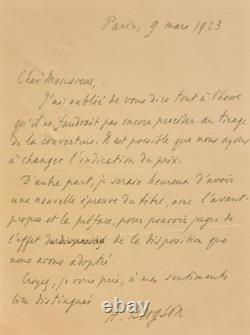 Paris, 9 mars 1923
Cher Monsieur,
J'ai oublié de vous dire tout à l'heure
qu'il ne faudrait pas encore procéder au tirage
de la couverture. Il est possible que nous ayons
à changer l'indication du prix.
D'autre part, je serais heureux d'avoir
une nouvelle épreuve du titre, avec l'avant-
propos et la préface, pour pouvoir juger de
l'effet de la disposition que
nous avons adoptée.
Croyez, je vous prie, à mes sentiments
bien distingués
H. Bergson